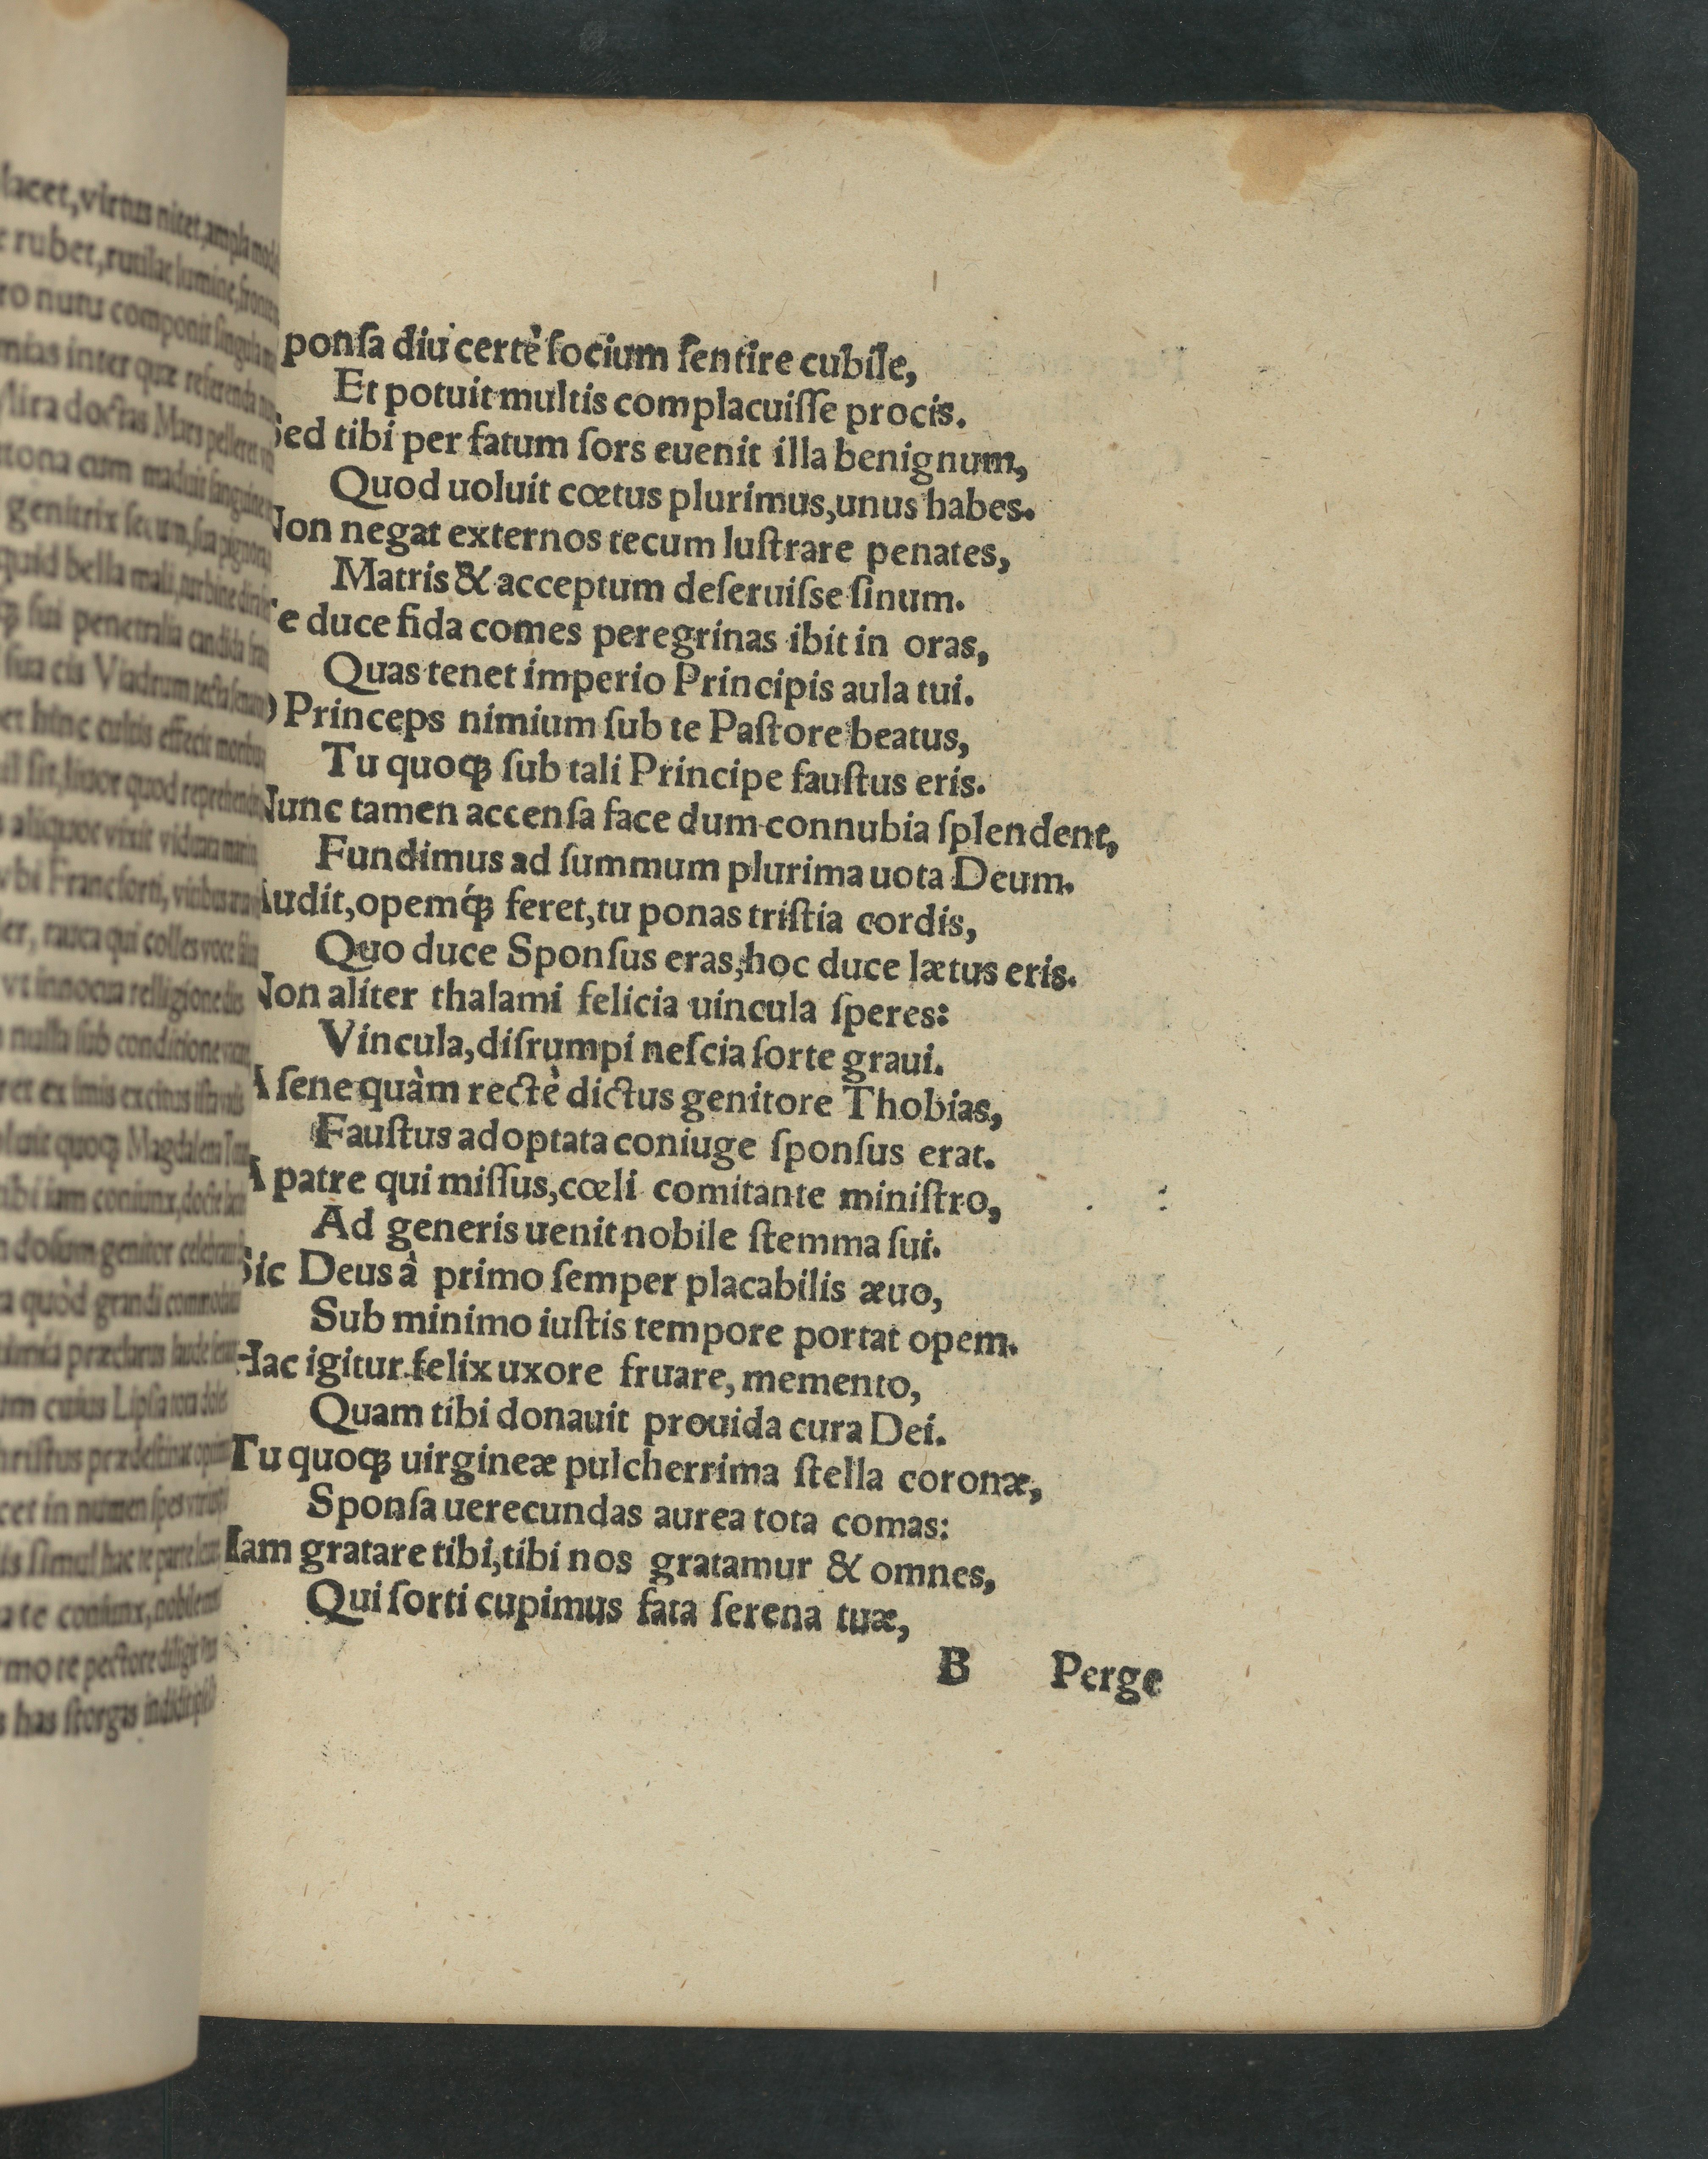 lacet, virtus nitet, ampla
rubet, rutilat lumine,
nutu componit singula
inter quæ referenda
doctas Mars pelleret
cum maduit sanguine
genitrix secum, sua pignora
quid bella mali, turbine
sui penetralia candida
sua cis Viadrum tecta
hinc cultis effecit moribus
sit, liuor quod reprehendat
aliquot vixit viduata
Francforti,
rauca qui colles voce
vt innocua relligione
nulla sub conditione
ex imis excitus
quoq́; Magdalena
tibi iam coniunx, docte
genitor
quòd grandi
præclarus laude
cuius Lipsia tota
prædestinat
in numen spes
simul, hac te
coniunx,
pectore diligit
has storgas indidit
ponſa diu certè ſocium ſentire cubile,
Et potuit multis complacuiſſe procis.
Sed tibi per fatum ſors euenit illa benignum,
Quod uoluit cœtus plurimus, unus habes.
Non negat externos tecum luſtrare penates,
Matris & acceptum deſeruiſse ſinum.
Te duce fida comes peregrinas ibit in oras,
Quas tenet imperio Principis aula tui.
O Princeps nimium ſub te Paſtore beatus,
Tu quoqꝫ ſub tali Principe fauſtus eris.
Nunc tamen accenſa face dum connubia ſplendent,
Fundimus ad ſummum plurima uota Deum.
Audit, opemq́ꝫ feret, tu ponas triſtia cordis,
Quo duce Sponſus eras, hoc duce lætus eris.
Non aliter thalami felicia uincula ſperes:
Vincula, diſrumpi neſcia ſorte graui.
A ſene quàm rectè dictus genitore Thobias,
Fauſtus adoptata coniuge ſponſus erat.
A patre qui miſſus, cœli comitante miniſtro,
Ad generis uenit nobile ſtemma ſui.
Sic Deus à primo ſemper placabilis æuo,
Sub minimo iuſtis tempore portat opem.
Hac igitur felix uxore fruare, memento,
Quam tibi donauit prouida cura Dei.
Tu quoqꝫ uirgineæ pulcherrima ſtella coronæ,
Sponſa uerecundas aurea tota comas:
Iam gratare tibi, tibi nos gratamur & omnes,
Qui ſorti cupimus fata ſerena tuæ,
B Perge